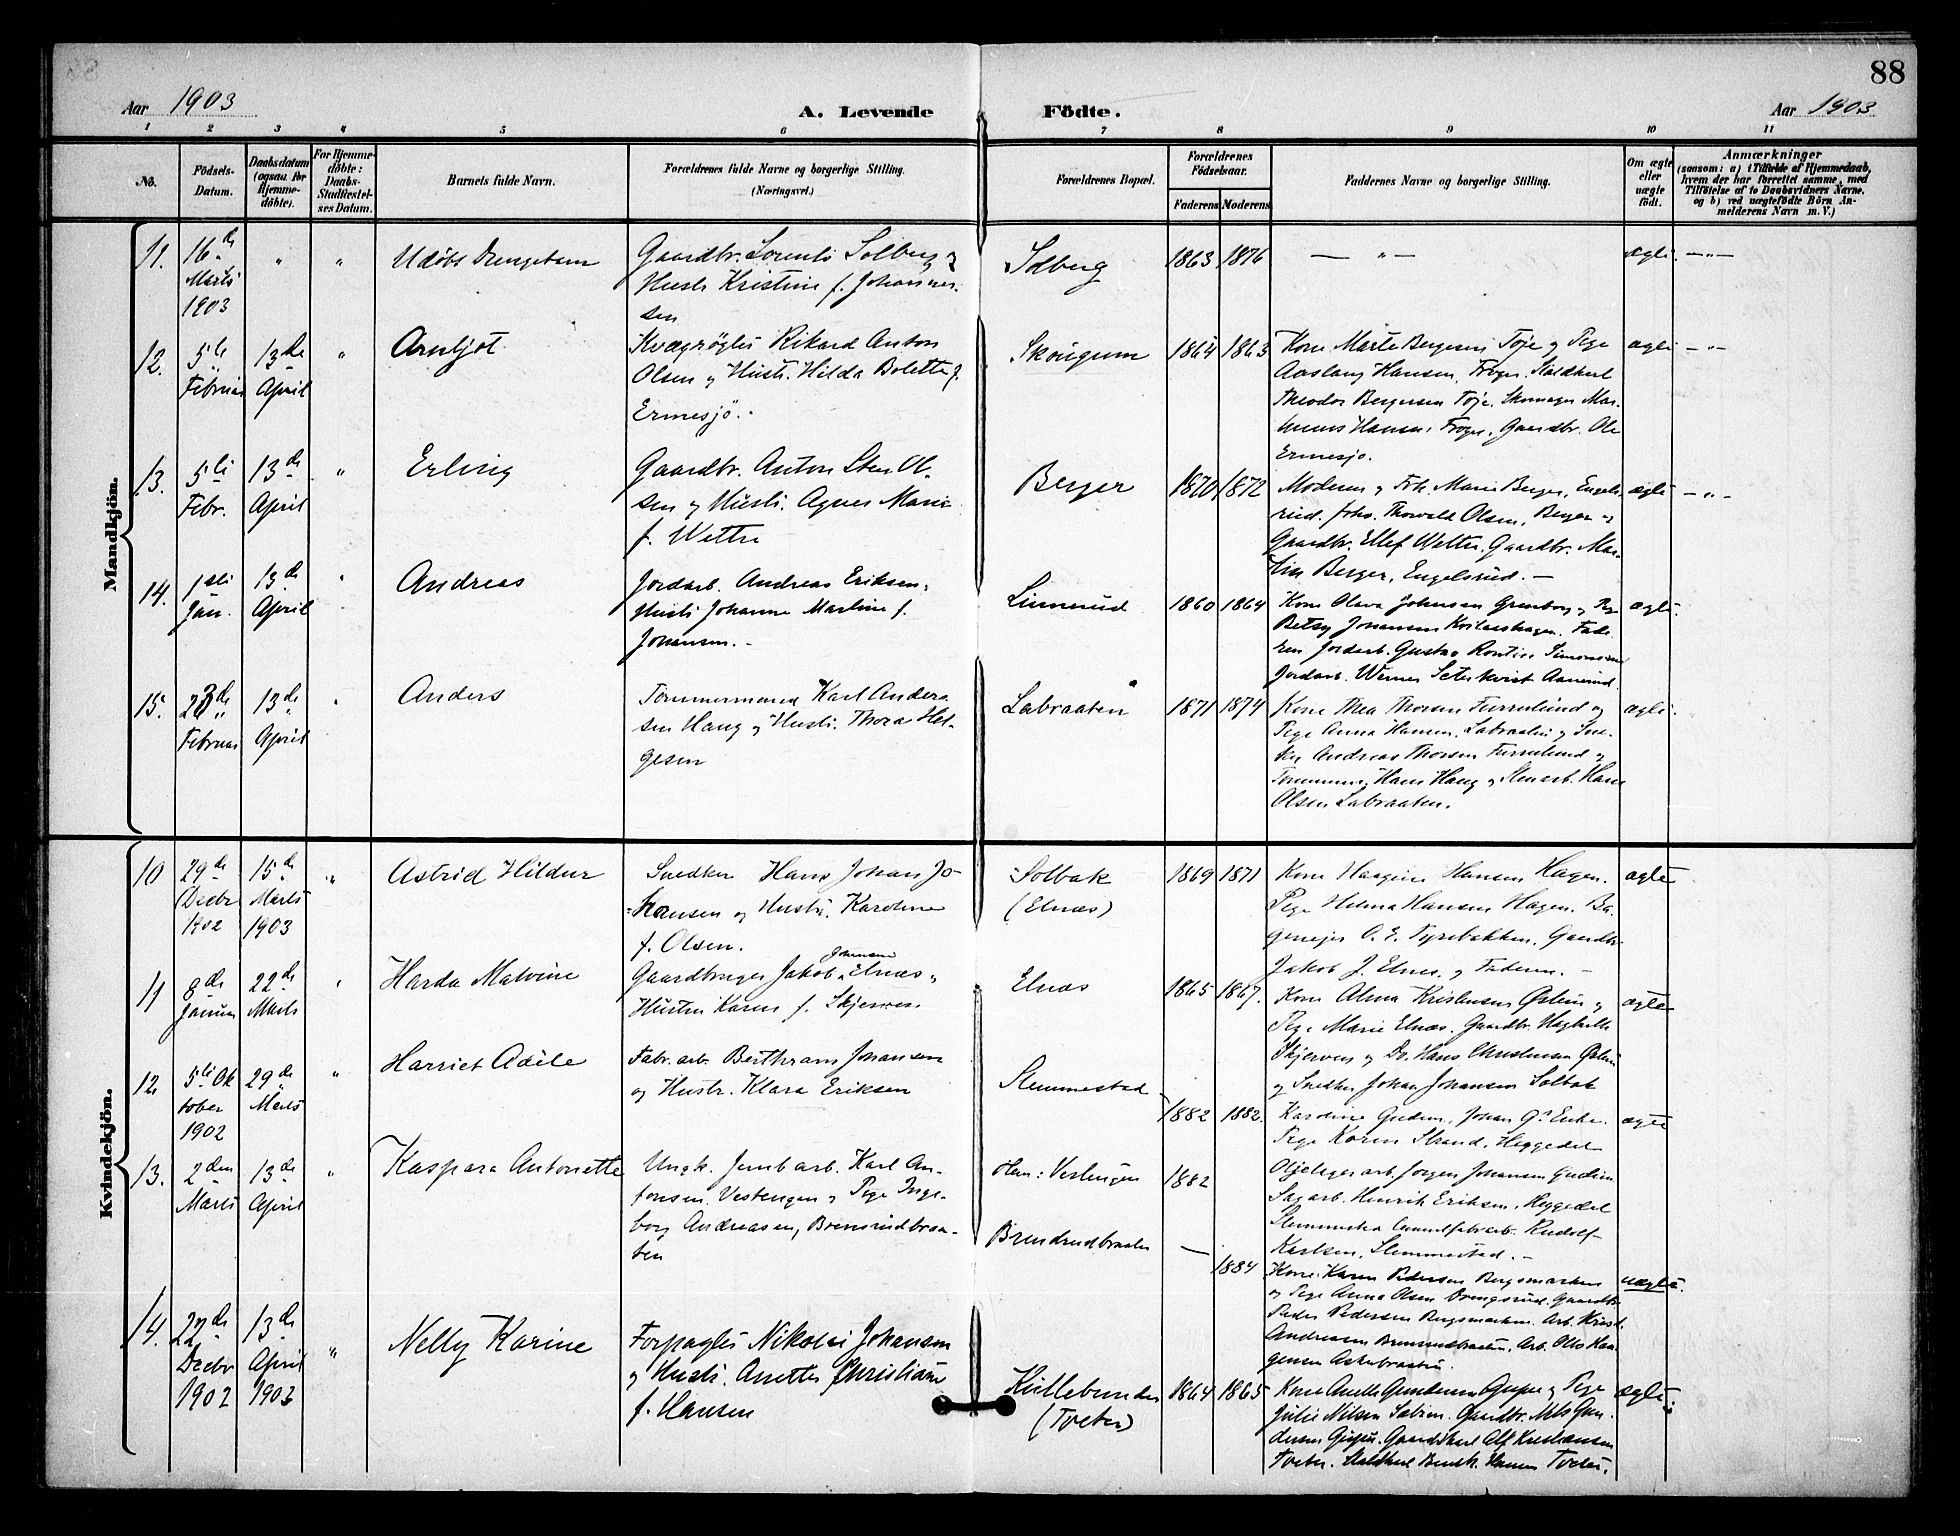 88
Aar 1903
A. Levende Födte.
Aar 1903
1 2 3 4 5 6 7 8 9 10 11
No.
Födsels-Datum.
Daabsdatum (ogsaa for Hjemme-döbte).
For Hjemme-döbte: Daabs-Stadfæstel-ses Datum.
Barnets fulde Navn.
Forældrenes fulde Navne og borgerlige Stilling.
(Næringsvei.)
Forældrenes Bopæl.
Forældrenes Födselsaar.
Faderens Moderens
Faddernes Navne og borgerlige Stilling.
Om ægte eller uægte födt.
Anmærkninger
(saasom: a) i Tilfælde af Hjemmedaab, hvem der har forrettet samme, med Tilföielse af to Daabsvidners Navne, og b) ved uægtefödte Börn An-melderens Navn m. V.)
Mandkjön.
11. 16de Marts 1903 " " Udöbt Drengebarn
Gaardbr. Lorents Solberg og
Hustr Kristine f. Johannes-
sen
Solberg 1863 1876 — " — ægte — " —
12. 5te Februar 13de April " Arnljot
Kvægrøgter Rikard Anton
Olsen og Hustr. Hilda Bolette f.
Ermesjö.
Skougum 1864 1863
Kone Marte Bergersen Toje og Pige
Aaslaug Hansen, Staldkarl
Theodor Bergersen Toje, Skomager Mar-
Hansen, Gaardbr. Ole
Ermesjo.
ægte — " —
13. 5te Febr. 13de April " Erling
Gaardbr. Anton Sten Ol-
sen og Hustr. Agnes Marie
f. Wettre
Berger 1870 1872
Moderen og Frk. Marie Berger, Engels-
rud. Johs. Thorvald Olsen, Berger og
Gaardbr. Ellef Wettre, Gaardbr. Mar-
tin Berger, Engelsrud. —
ægte — " —
14. 1ste Jan. 13de April " Andreas
Jordarb. Andreas Eriksen,
Hustr Johanne Martine f.
Johansen. —
Linnerud 1860 1864
Kone Olava Johansen og Pige
Betsy Johansen Fade-
ren Jordarb. Gustav Pontus Simonsen
Jordarb. Werner Seterkvist Aamerud.
ægte.
15. 23de Februar 13de April " Anders
Tømmermand Karl Ander-
sen Haug og Hustr. Thora Hel-
gesen
Labraaten 1871 1874
Kone Thea Thorsen Furuslund og
Pige Anna Hansen, Labraaten og Sne-
ker Andreas Thorsen Furulund og
Tømmerm. Hans Haug og Stenarb. Hans
Olsen Labraaten.
ægte.
Kvindekjön.
10 29de Decbr 1902 15de Marts 1903 " Astrid Hildur
Snedker Hans Johan Jo-
hansen og Hustr. Karoline
f. Olsen.
Solbak
(Elnæs) 1869 1871
Kone Hansen Hagen.
Pige Helma Hansen Hagen. Ba-
O. E. Fyrebakken, Gaardbr.
Jakob J. Elnes og Faderen. —
ægte
11 8de Januar 22de Marts " Harda Malvine
Johansen
Gaardbruger Jakob Elnæs og
Hustru Karen f. Skjerven.
Elnæs 1865 1867.
Kone Alma Kristensen Østern og
Pige Marie Elnæs. Gaardbr.
Skjerven og Dr. Hans Christensen Østern
og Snedker Johan Johansen Solbak
ægte
12. 5te Oktober 1902 29de Marts " Harriet Adéle
Fabr. arb. Berthram Johansen
og Hustr. Klara Eriksen
Slemmestad 1882 1882.
Karoline Gudim, Johan Gs Enke.
Pige Karen Strand, Heggedal
Oljelagerarb. Jørgen Johansen Gudim
Sagarb. Henrik Eriksen, Heggedal
Slemmestad Cementfabrarb. Rudolf
Karlsen, Slemmestad. —
ægte
13. 2den Marts 13de April " Kaspara Antonette
Ungk. Jernb arb. Karl An-
tonsen, Vestengen og Pige Inge-
borg Andreasen, Brensrudbraa-
ten
Han: Vestengen 1882
Brendsrudbraaten — 1884
Kone Karen Pedersen Bergsmarken
og Pige Anna Olsen Drengsrud. Gaardbr.
Peder Pedersen Bergsmarken. Arb. Krist.
Andreasen Brensrudbraaten, Arb. Otto Haa-
gensen Askebraaten.
uægte.
14. 22de Decbr 1902 13de April 1903 " Nelly Karine
Forpagter Nikolai Johansen
og Hustr. Anette Christiane
f. Hansen
Hullebunden
(Tveter) 1864 1865
Kone Anette Gundersen Gupu og Pige
Julie Nilsen Gaardbr. Nils Gun-
dersen Gupu. Gaardskarl Alf Kristiansen
Tveter. Staldkarl Hansen Tveter.
ægte